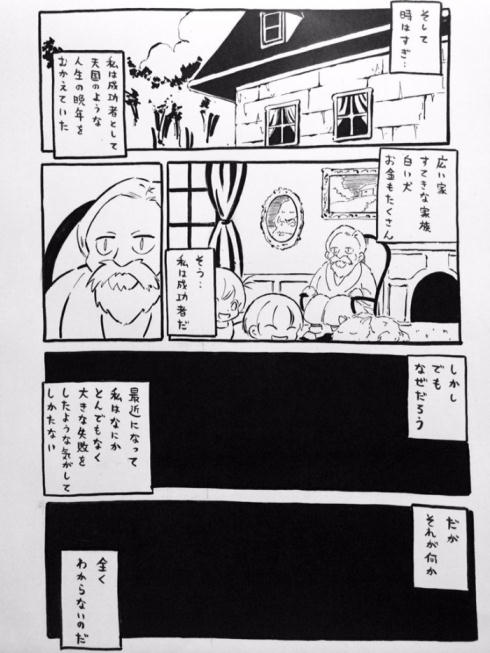 そして
時はすぎ…
私は成功者として
天国のような
人生の晩年を
むかえていた
広い家
すてきな家族
白い犬
お金もたくさん
そう…
私は成功者だ
しかし
でも
なぜだろう
最近になって
私はなにか
とんでもなく
大きな失敗を
したような気がして
しかたない
だが
それが何か
全く
わからないのだ